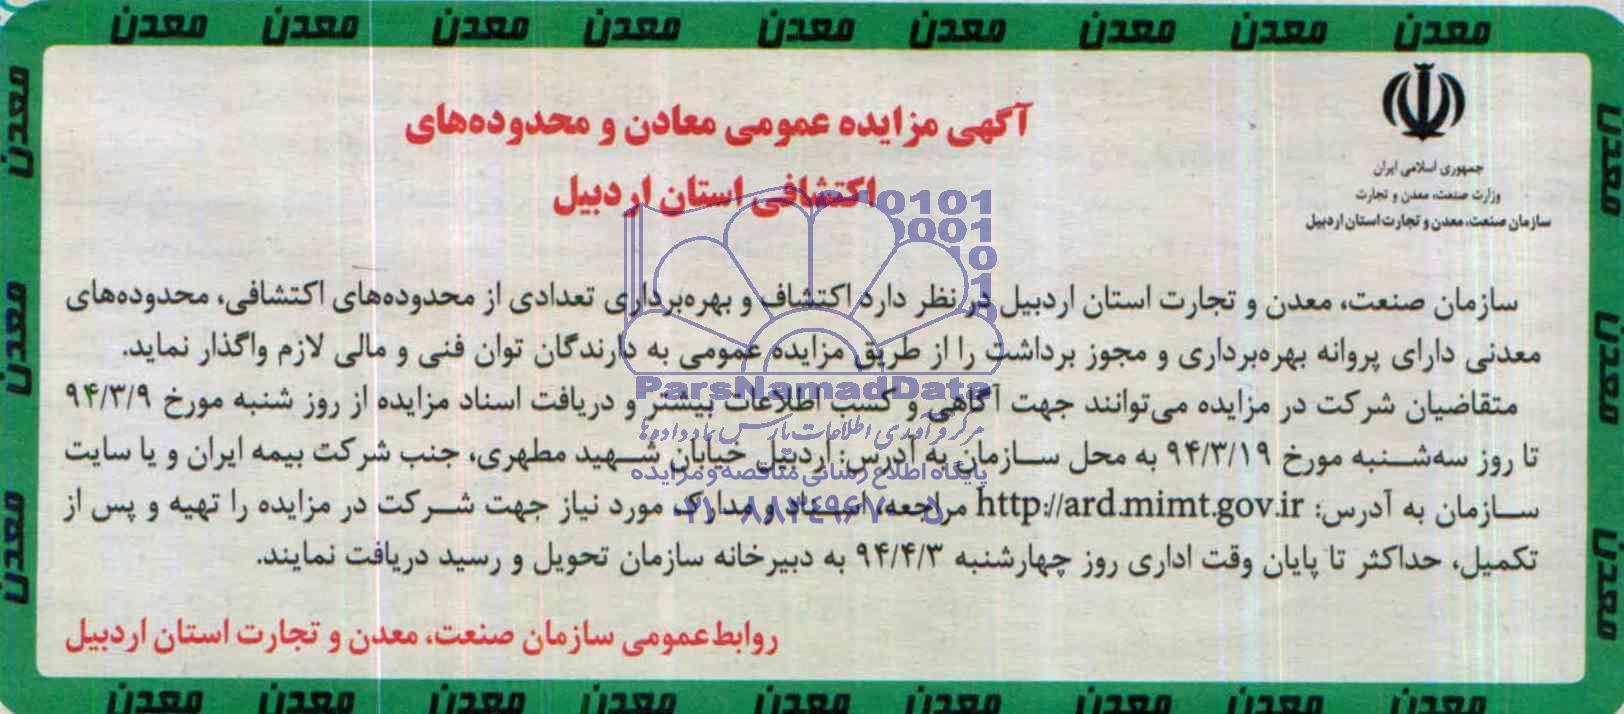 معدن معدن معدن معدن معدن معدن معدن معدن معدن
جمهوری اسلامی ایران
وزارت صنعت، معدن و تجارت
سازمان صنعت، معدن و تجارت استان اردبیل
آگهی مزایده عمومی معادن و محدوده‌های
اکتشافی استان اردبیل
سازمان صنعت، معدن و تجارت استان اردبیل در نظر دارد اکتشاف و بهره‌برداری تعدادی از محدوده‌های اکتشافی، محدوده‌های
معدنی دارای پروانه بهره‌برداری و مجوز برداشت را از طریق مزایده عمومی به دارندگان توان فنی و مالی لازم واگذار نماید.
متقاضیان شرکت در مزایده می‌توانند جهت آگاهی و کسب اطلاعات بیشتر و دریافت اسناد مزایده از روز شنبه مورخ ۹۴/۳/۹
تا روز سه‌شنبه مورخ ۹۴/۳/۱۹ به محل سازمان به آدرس: اردبیل خیابان شهید مطهری، جنب شرکت بیمه ایران و یا سایت
سازمان به آدرس: http://ard.mimt.gov.ir مراجعه، اسناد و مدارک مورد نیاز جهت شرکت در مزایده را تهیه و پس از
تکمیل، حداکثر تا پایان وقت اداری روز چهارشنبه ۹۴/۴/۳ به دبیرخانه سازمان تحویل و رسید دریافت نمایند.
روابط‌عمومی سازمان صنعت، معدن و تجارت استان اردبیل
0101
0001
10
1
ParsNamadData
مرکز فرآوری اطلاعات پارس نماد داده‌ها
پایگاه اطلاع رسانی مناقصه و مزایده
۰۲۱-۸۸۳۴۹۶۷۰-۵
معدن
معدن
معدن
معدن
معدن
معدن
معدن معدن معدن معدن معدن معدن معدن معدن معدن